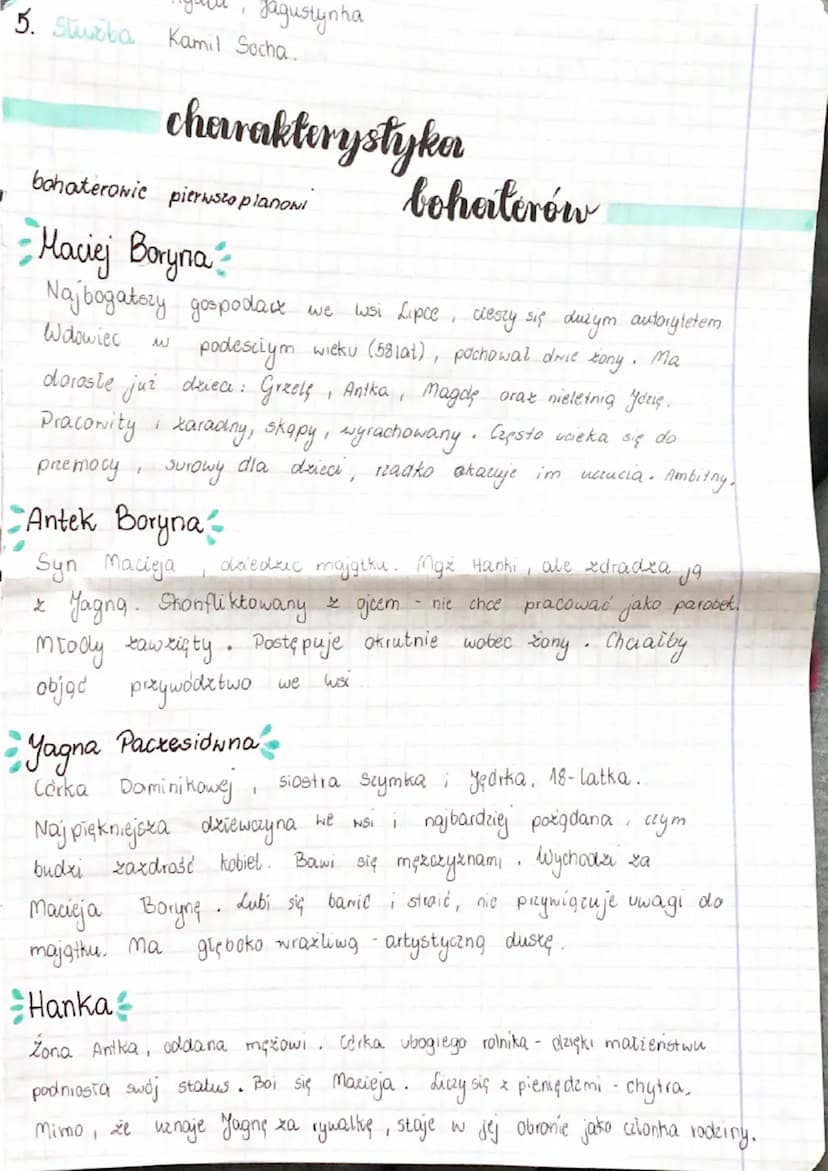 Jagustynka
5. Służba Kamil Socha.
charakterystyka
bohaterów
bohaterowie pierwszoplanowi
Maciej Boryna
Najbogatszy gospodarz we wsi Lipce, cieszy się dużym autorytetem
Wdowiec w podeściym wieku (58 lat), pochował dwie żony. Ma
dorosłe już dzieci: Grzelę, Antka, Magdę oraz nieletnią Józię.
Pracowity i zaradny, skąpy, wyrachowany. Często ucieka się do
przemocy, surowy dla dzieci, rzadko okazuje im uczucia. Ambitny.
Antek Boryna
Syn Macieja, dziedzic majątku. Mąż Hanki, ale zdradza ją
z Jagną. Skonfliktowany z ojcem - nie chce pracować jako parobek.
Młody zawzięty. Postępuje okrutnie wobec żony. Chciałby
objąć przywództwo we wsi
Jagna Paczesiówna
Córka Dominikowej, siostra Szymka i Jędrka, 18-latka.
Najpiękniejsza dziewczyna we wsi i najbardziej pożądana, czym
budzi zazdrość kobiet. Bawi się mężczyznami. Wychodzi za
Macieja Borynę. Lubi się bawić i stroić, nie przywiązuje uwagi do
majątku. Ma głęboko wrażliwą - artystyczną duszę.
Hanka
Żona Antka, oddana mężowi. Córka ubogiego rolnika - dzięki małżeństwu
podniosła swój status. Boi się Macieja. Liczy się z pieniędzmi - chytra.
Mimo, że uznaje Jagnę za rywalkę, staje w jej obronie jako członka rodziny.